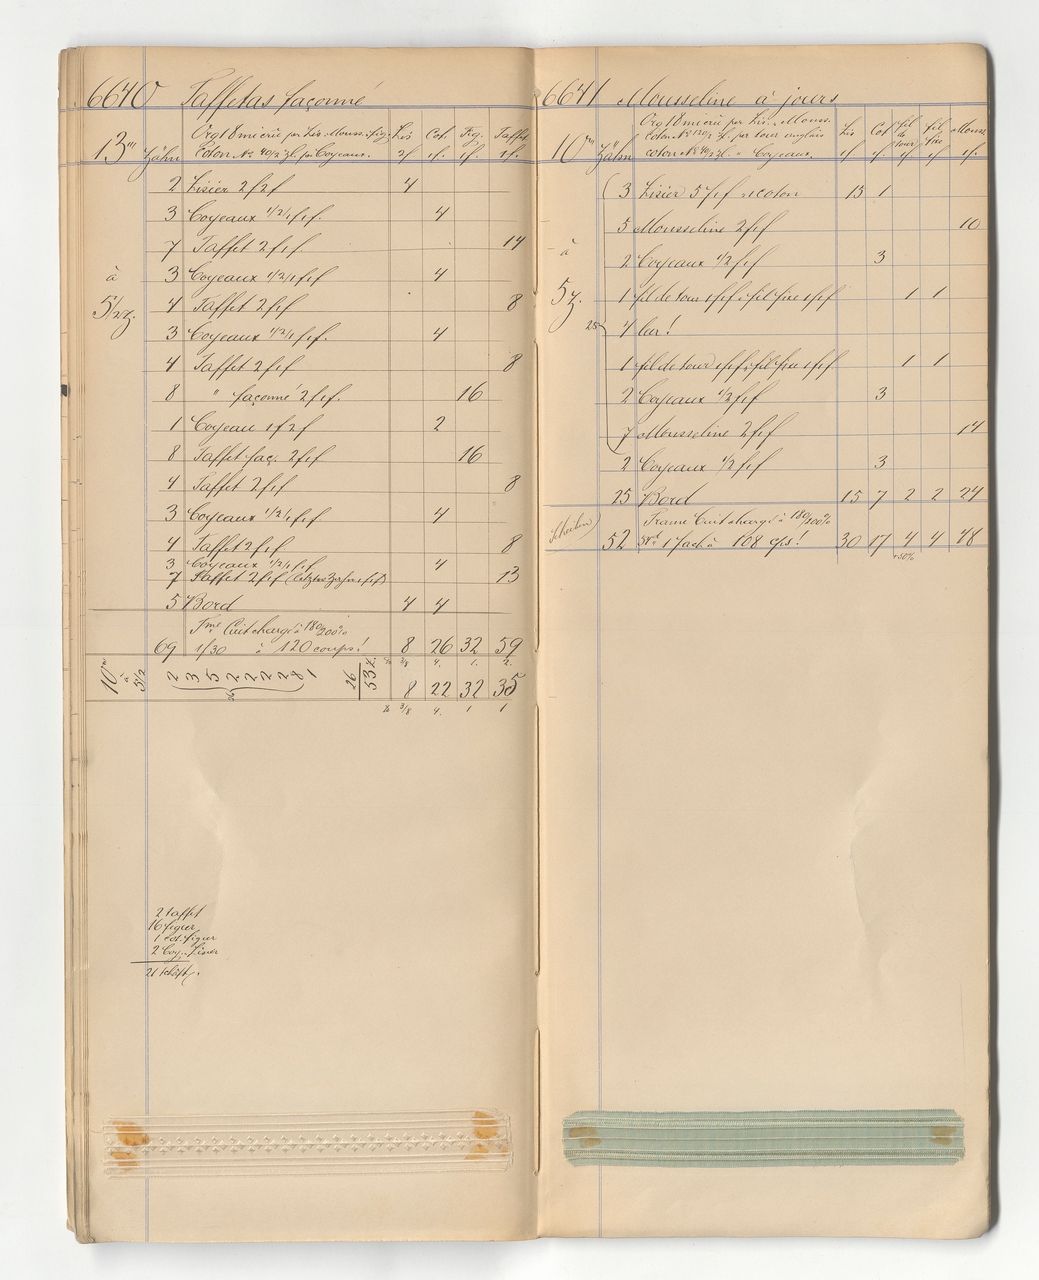 6640 Taffetas façonné
Org 18 mi crû per Lis. Mouss. Fig.
Coton No 40/2 zl. per Coyeaux.
Lis Cot. Fig. Taffet
13''' Zähn 2f 1f. 1f. 1f.
2 Lisier 2f2f 4
3 Coyeaux 1/2/1 f.f. 4
7 Taffet 2f1f 14
à 3 Coyeaux 1/2/1 f1f 4
5 1/2 z. 4 Taffet 2f1f 8
3 Coyeaux 1/2/1 f.f. 4
4 Taffet 2f1f 8
8 " façonné 2f1f. 16
1 Coyeau 1f2f 2
8 Taffet faç. 2f1f 16
4 Taffet 2f1f 8
3 Coyeaux 1/2/1 f1f 4
4 Taffet 2f1f 8
3 Coyeaux 1/2/1 f1f 4
7 Taffet 2f1f (letzter Zahn 1f1f) 13
5 Bord 4 4
Tme Cuit chargé à 180/200%
69 1/30 à 120 coups! 8 26 32 59
3/8 4. 1. 2.
10''' à 5 1/2
2 3 5 2 2 2 2 8 1
26
53 z.
8 22 32 35
3/8 4. 1 1
2 taffet
16 figur
1 cot. figur
2 Coy. Lisier
21 Schäft.
6641 Mousseline à jours
Org 18 mi crû per Lis. Mouss.
Coton No 120/2 zl. per tour anglais
coton No 40/2 zl. " Coyeaux.
Lis Cot fil de tour fil fixe Mouss.
10''' Zähn 1f 1f. 1f 1f 1f.
3 Lisier 5f1f coton 13 1
5 Mousseline 2f1f 10
à 2 Coyeaux 1/2f1f 3
5 z. 1 fil de tour 1f1f. fil fixe 1f1f 1 1
25 4 leer!
1 fil de tour 1f1f. fil fixe 1f1f 1 1
2 Coyeaux 1/2f1f 3
7 Mousseline 2f1f 14
2 Coyeaux 1/2 f1f 3
25 Bord 15 7 2 2 24
Trame Cuit chargé à 180/200%
52 1 fach à 108 cps! 30 17 4 4 48
+50%